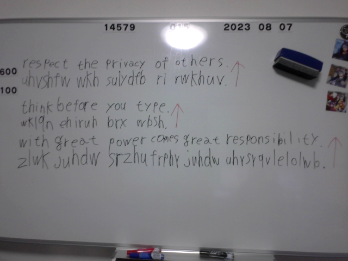 14579 2023 08 07
respect the privacy of others.
600 uhvshfw wkh sulydfb ri rwkhuv.
100
think before you type.
wklqn ehiruh brx wbsh.
with great power comes great responsibility.
zlwk juhdw srzhu frphv juhdw uhvsrqvlelolwb.